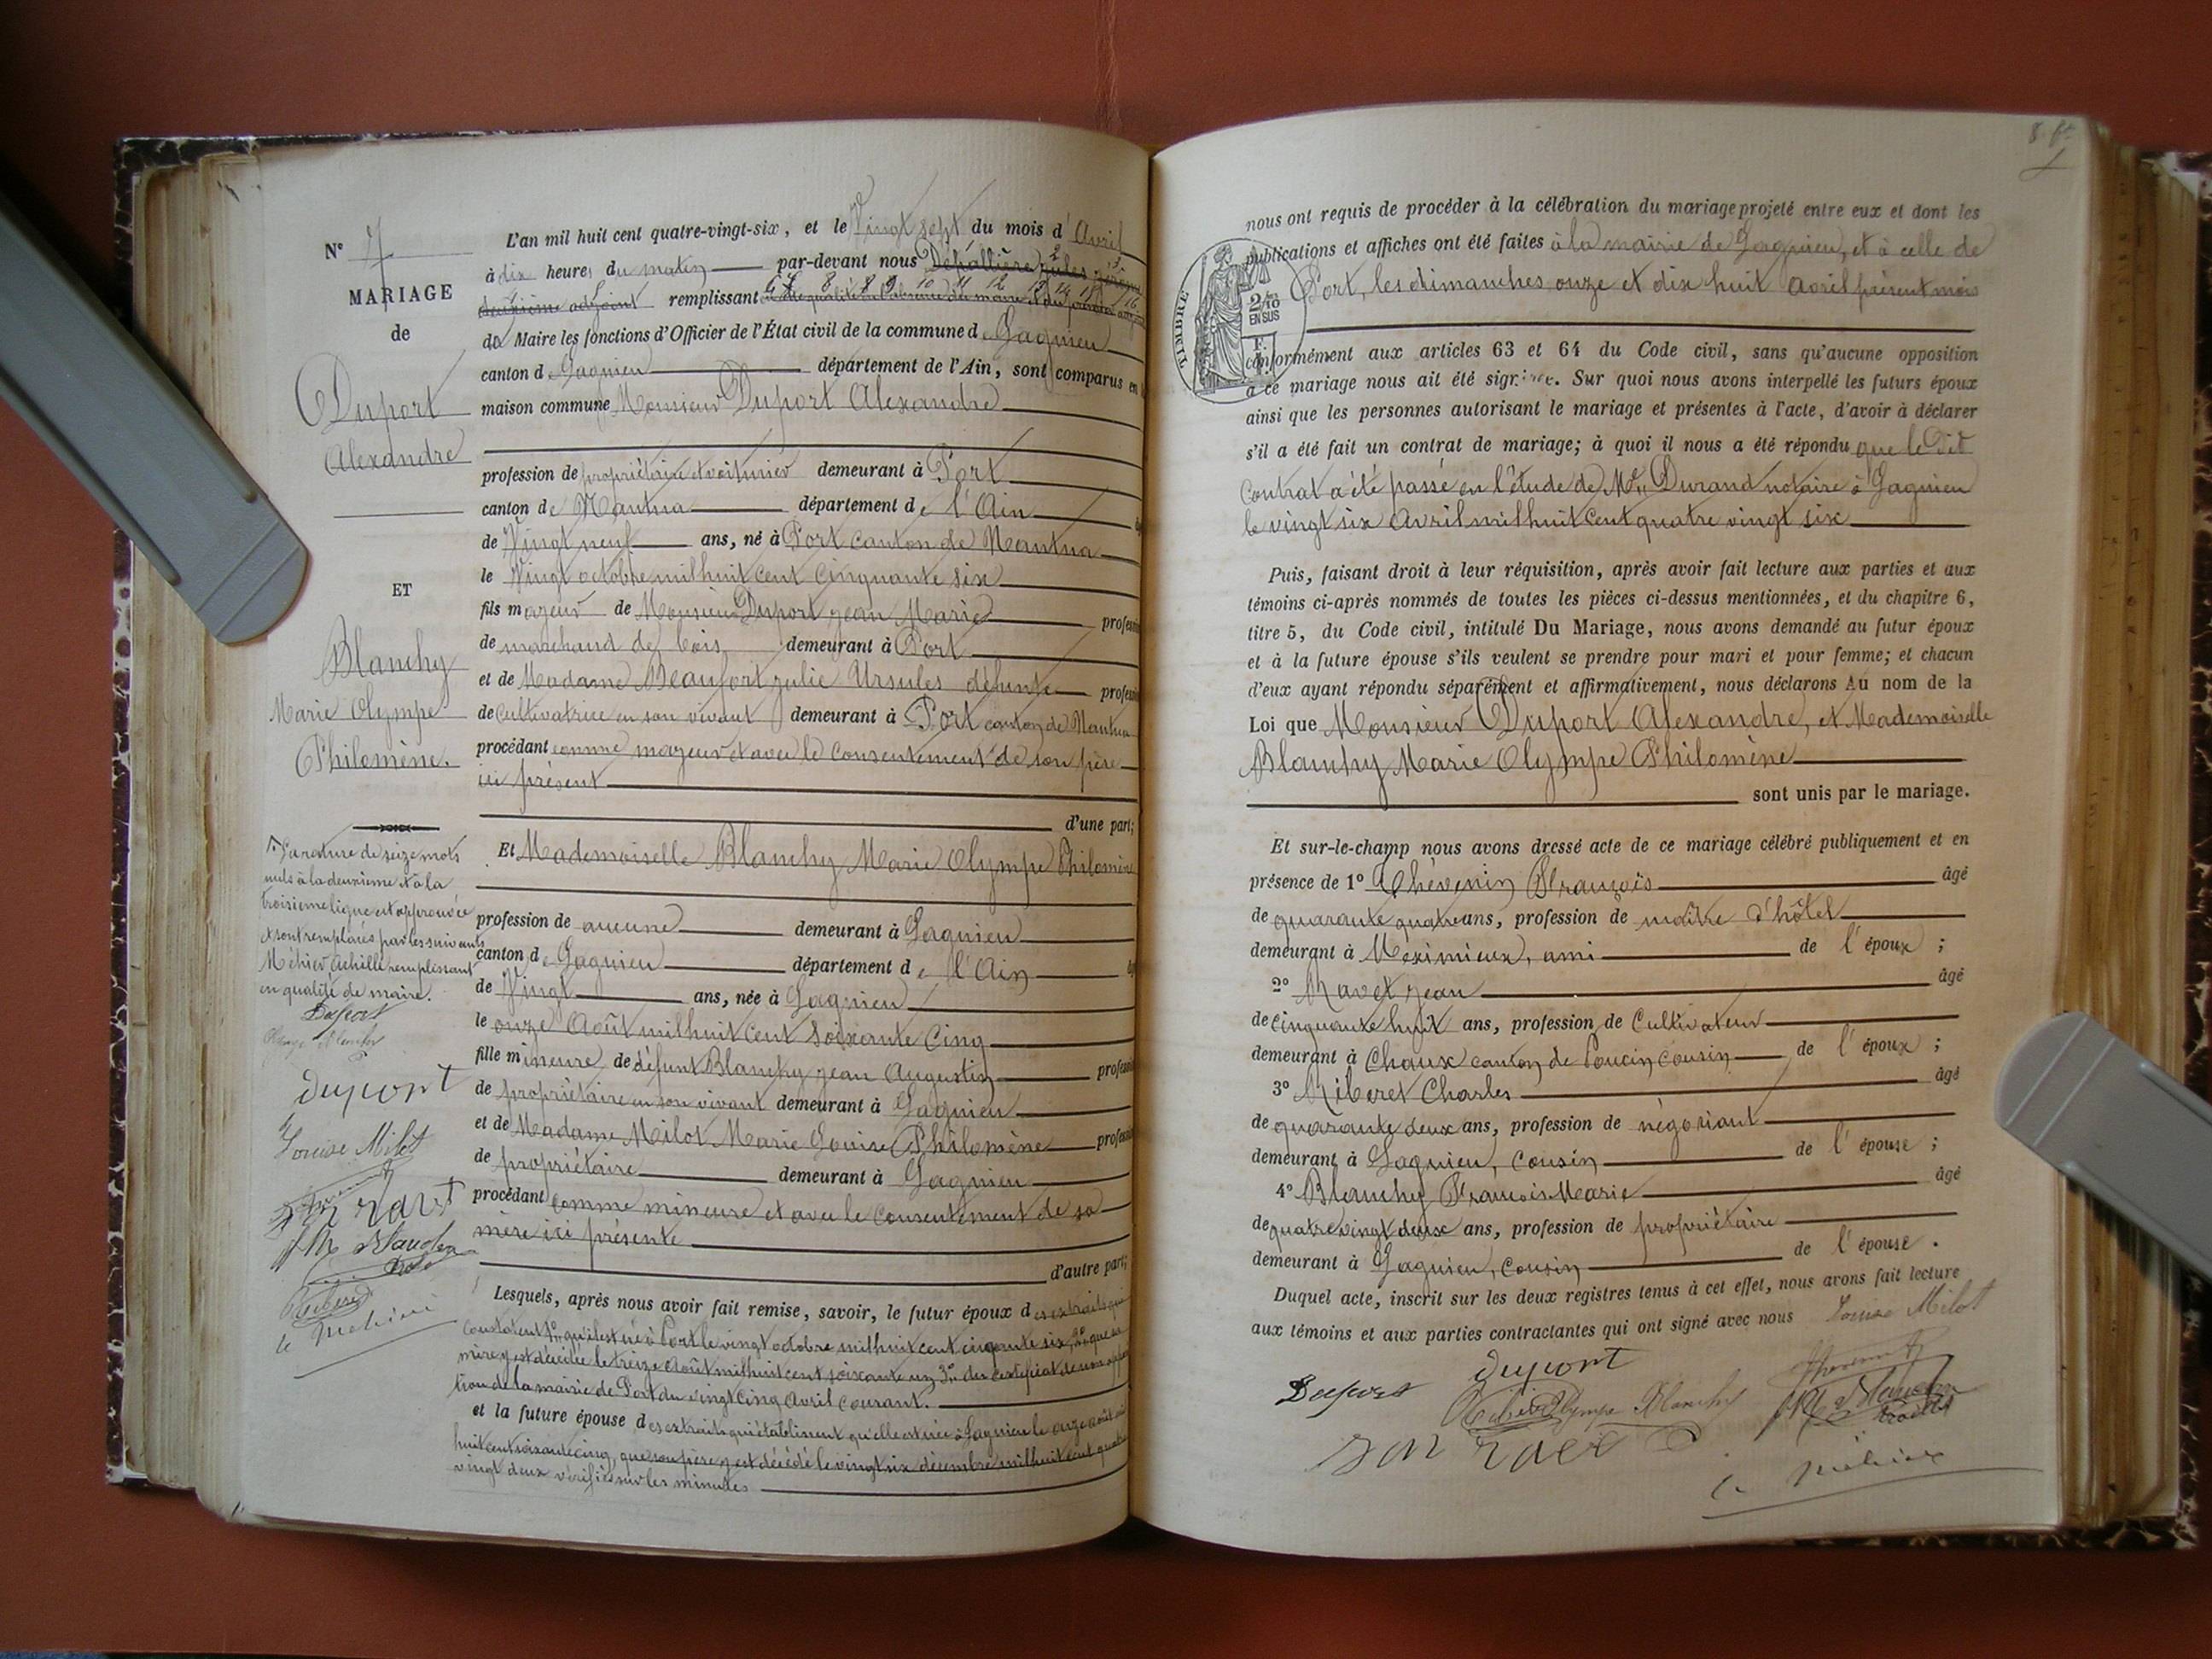 N° 7
MARIAGE
de
Duport
Alexandre
ET
Blanchy
Marie Olympe
Philomène.
Rature de seize mots
nuls à la deuxième et à la
troisième ligne est approuvée
et sont remplacés par les suivants
Méhier Achille remplissant
en qualité de maire.
Duport
Olympe Blanchy
duport
Louise Milot
L'an mil huit cent quatre-vingt-six, et le Vingt sept du mois d'Avril
à dix heures du matin par-devant nous Dépallière Jules
deuxième adjoint remplissant
de Maire les fonctions d'Officier de l'État civil de la commune de Lagnieu
canton de Lagnieu département de l'Ain, sont comparus en
maison commune Monsieur Duport Alexandre
profession de propriétaire et voiturier demeurant à Port
canton de Nantua département de l'Ain
de Vingt neuf ans, né à Port canton de Nantua
le Vingt octobre mil huit cent cinquante six
fils majeur de Monsieur Duport Jean Marie profession
de marchand de bois demeurant à Port
et de Madame Beaufort Julie Ursules défunte profession
de Cultivatrice en son vivant demeurant à Port canton de Nantua
procédant comme majeur et avec le consentement de son père
ici présent
d'une part;
Et Mademoiselle Blanchy Marie Olympe Philomène
profession de aucune demeurant à Lagnieu
canton de Lagnieu département de l'Ain
de Vingt ans, née à Lagnieu
le onze Août mil huit cent soixante cinq
fille mineure de défunt Blanchy Jean Augustin profession
de propriétaire en son vivant demeurant à Lagnieu
et de Madame Milot Marie Louise Philomène profession
de propriétaire demeurant à Lagnieu
procédant comme mineure et avec le consentement de sa
mère ici présente
d'autre part;
Lesquels, après nous avoir fait remise, savoir, le futur époux des extraits qui
constatent 1° qu'il est né à Port le vingt octobre mil huit cent cinquante six, 2° que sa
mère y est décédée le treize Août mil huit cent soixante un, 3° du certificat de non oppo
tion de la mairie de Port du vingt cinq Avril courant.
et la future épouse des extraits qui établissent qu'elle est née à Lagnieu le onze août mil
huit cent soixante cinq, que son père y est décédé le vingt six décembre mil huit cent quatre
vingt deux vérifiés sur les minutes
TIMBRE
2/10
EN SUS
nous ont requis de procéder à la célébration du mariage projeté entre eux et dont les
publications et affiches ont été faites à la mairie de Lagnieu, et à celle de
Port, les dimanches onze et dix huit avril présent mois
conformément aux articles 63 et 64 du Code civil, sans qu'aucune opposition
à ce mariage nous ait été signifiée. Sur quoi nous avons interpellé les futurs époux
ainsi que les personnes autorisant le mariage et présentes à l'acte, d'avoir à déclarer
s'il a été fait un contrat de mariage; à quoi il nous a été répondu que le dit
Contrat a été passé en l'étude de Me Durand notaire à Lagnieu
le vingt six Avril mil huit cent quatre vingt six
Puis, faisant droit à leur réquisition, après avoir fait lecture aux parties et aux
témoins ci-après nommés de toutes les pièces ci-dessus mentionnées, et du chapitre 6,
titre 5, du Code civil, intitulé Du Mariage, nous avons demandé au futur époux
et à la future épouse s'ils veulent se prendre pour mari et pour femme; et chacun
d'eux ayant répondu séparément et affirmativement, nous déclarons Au nom de la
Loi que Monsieur Duport Alexandre, et Mademoiselle
Blanchy Marie Olympe Philomène
sont unis par le mariage.
Et sur-le-champ nous avons dressé acte de ce mariage célébré publiquement et en
présence de 1° Thévenin François âgé
de quarante quatre ans, profession de maître d'hôtel
demeurant à Meximieux, ami de l'époux ;
2° Ravet Jean âgé
de Cinquante huit ans, profession de Cultivateur
demeurant à Chaux canton de Poncin Cousin de l'époux ;
3° Riberet Charles âgé
de quarante deux ans, profession de négociant
demeurant à Lagnieu, Cousin de l'épouse ;
4° Blanchy François Marie âgé
de quatre vingt deux ans, profession de propriétaire
demeurant à Lagnieu, Cousin de l'épouse.
Duquel acte, inscrit sur les deux registres tenus à cet effet, nous avons fait lecture
aux témoins et aux parties contractantes qui ont signé avec nous Louise Milot
duport
Duport
Olympe Blanchy